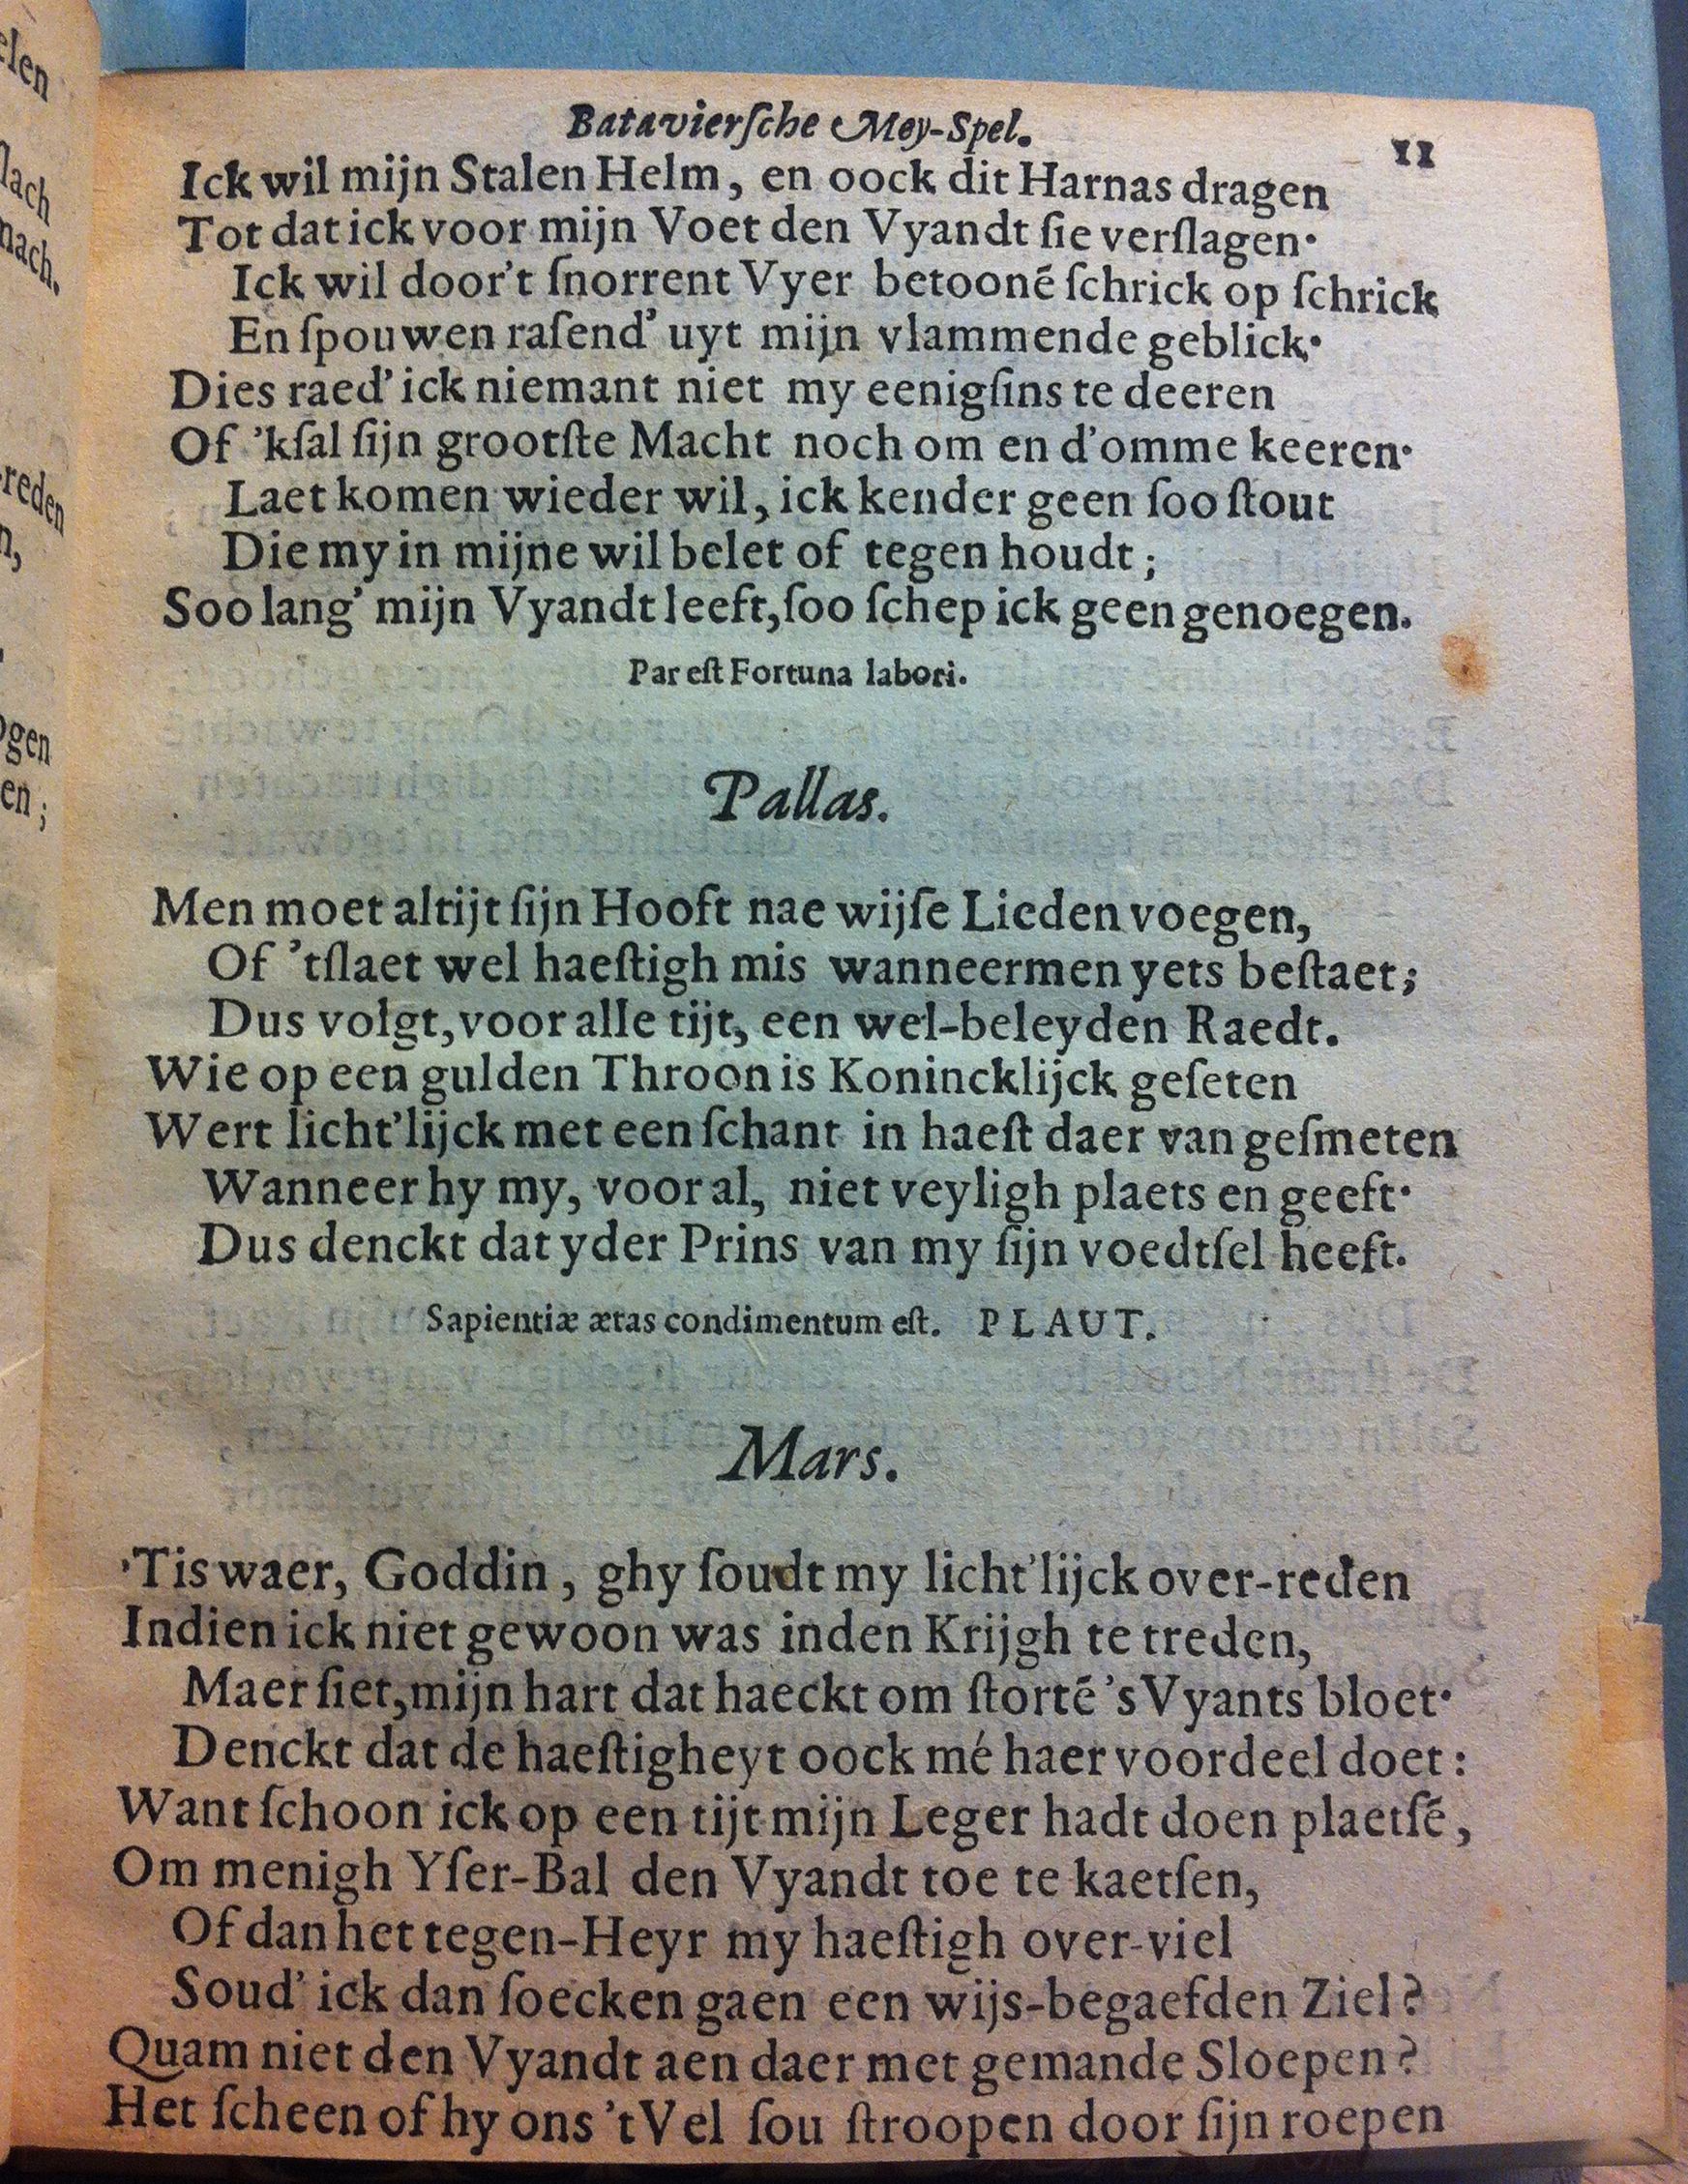 elen
lach
mach.
reden
n,
ogen
en;
Bataviersſche Mey-Spel. 11
Ick wil mijn Stalen Helm, en oock dit Harnas dragen
Tot dat ick voor mijn Voet den Vyandt ſie verſlagen·
Ick wil door't ſnorrent Vyer betooné ſchrick op ſchrick
En ſpouwen raſend' uyt mijn vlammende geblick·
Dies raed' ick niemant niet my eenigſins te deeren
Of 'kſal ſijn grootſte Macht noch om en d'omme keeren·
Laet komen wieder wil, ick kender geen ſoo ſtout
Die my in mijne wil belet of tegen houdt;
Soo lang' mijn Vyandt leeft, ſoo ſchep ick geen genoegen.
Par eſt Fortuna labori.
Pallas.
Men moet altijt ſijn Hooft nae wijſe Lieden voegen,
Of 'tſlaet wel haeſtigh mis wanneermen yets beſtaet;
Dus volgt, voor alle tijt, een wel-beleyden Raedt.
Wie op een gulden Throon is Konincklijck geſeten
Wert licht'lijck met een ſchant in haeſt daer van geſmeten
Wanneer hy my, voor al, niet veyligh plaets en geeft·
Dus denckt dat yder Prins van my ſijn voedtſel heeft.
Sapientiæ ætas condimentum eſt. PLAUT.
Mars.
'Tis waer, Goddin, ghy ſoudt my licht'lijck over-reden
Indien ick niet gewoon was inden Krijgh te treden,
Maer ſiet, mijn hart dat haeckt om ſtorté 's Vyants bloet·
Denckt dat de haeſtigheyt oock mé haer voordeel doet:
Want ſchoon ick op een tijt mijn Leger hadt doen plaetſé,
Om menigh Yſer-Bal den Vyandt toe te kaetſen,
Of dan het tegen-Heyr my haeſtigh over-viel
Soud' ick dan ſoecken gaen een wijs-begaefden Ziel?
Quam niet den Vyandt aen daer met gemande Sloepen?
Het ſcheen of hy ons 't Vel ſou ſtroopen door ſijn roepen